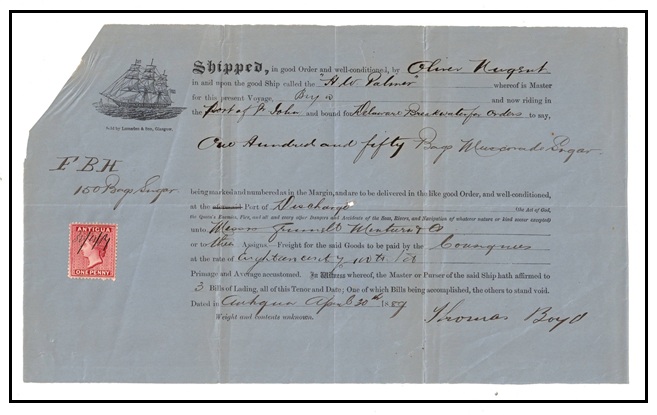 Shipped, in good Order and well-conditioned, by Oliver Nugent
in and upon the good Ship called the "H. W. Palmer" whereof is Master
for this present Voyage, and now riding in
the Port of St John and bound for Delaware Breakwater for orders to say,
One Hundred and fifty Bags Muscovado Sugar.
Sold by Lumsden & Son, Glasgow.
F B H
150 Bags Sugar
being marked and numbered as in the Margin, and are to be delivered in the like good Order, and well-conditioned,
at the aforesaid Port of Discharge (the Act of God,
the Queen's Enemies, Fire, and all and every other Dangers and Accidents of the Seas, Rivers, and Navigation of whatever nature or kind soever excepted)
unto Messrs & Co
or to their Assigns—Freight for the said Goods to be paid by the Consignees
at the rate of
Primage and Average accustomed. In Witness whereof, the Master or Purser of the said Ship hath affirmed to
3 Bills of Lading, all of this Tenor and Date; One of which Bills being accomplished, the others to stand void.
Dated in Antigua April 30th 1889
Weight and contents unknown.
Thomas Boyd
ANTIGUA
ONE PENNY